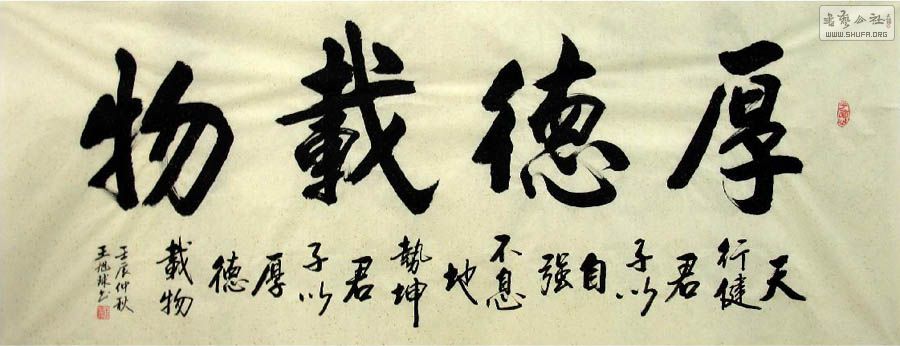 厚德載物
天
行健
君
子以
自
强
不息
地
勢坤
君
子以
厚
德
載物
壬辰仲秋
王旭球书
书艺公社
WWW.SHUFA.ORG